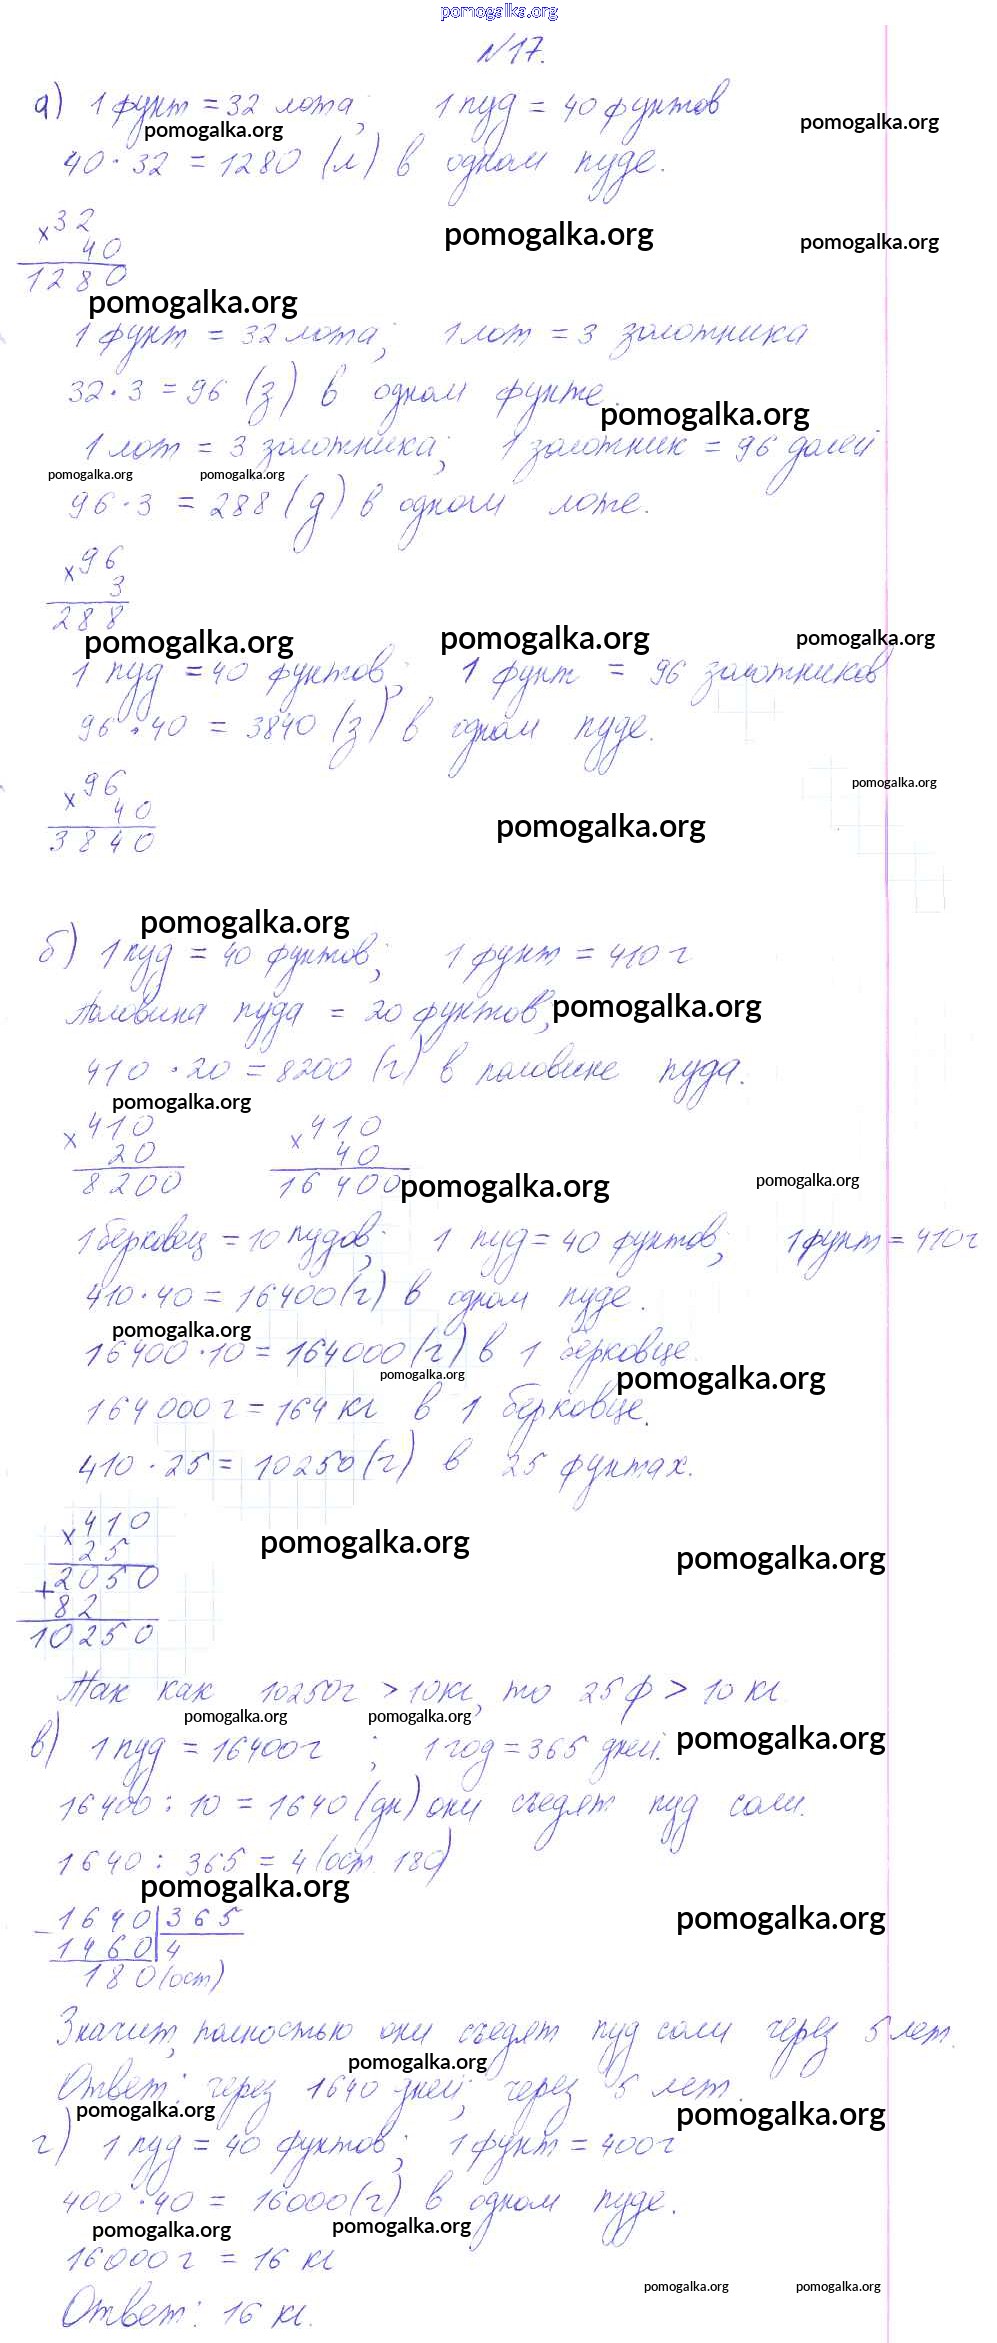 pomogalka.org
№17.
а) 1 фунт = 32 лота; 1 пуд = 40 фунтов
pomogalka.org pomogalka.org
40·32 = 1280 (л) в одном пуде.
×32
40
1280
pomogalka.org pomogalka.org
pomogalka.org
1 фунт = 32 лота; 1 лот = 3 золотника
32·3 = 96 (з) в одном фунте.
pomogalka.org
1 лот = 3 золотника; 1 золотник = 96 долей
pomogalka.org pomogalka.org
96·3 = 288 (д) в одном лоте.
×96
3
288
pomogalka.org pomogalka.org pomogalka.org
1 пуд = 40 фунтов; 1 фунт = 96 золотников
96·40 = 3840 (з) в одном пуде.
pomogalka.org
×96
40
3840
pomogalka.org
pomogalka.org
б) 1 пуд = 40 фунтов; 1 фунт = 410 г
Половина пуда = 20 фунтов; pomogalka.org
410·20 = 8200 (г) в половине пуда.
pomogalka.org
×410 ×410
20 40
8200 16400
pomogalka.org pomogalka.org
1 берковец = 10 пудов; 1 пуд = 40 фунтов; 1 фунт = 410 г
410·40 = 16400 (г) в одном пуде.
pomogalka.org
16400·10 = 164000 (г) в 1 берковце.
pomogalka.org pomogalka.org
164000 г = 164 кг в 1 берковце.
410·25 = 10250 (г) в 25 фунтах.
×410
25
+2050
82
10250
pomogalka.org pomogalka.org
Так как 10250 г > 10 кг, то 25 ф > 10 кг
pomogalka.org pomogalka.org pomogalka.org
в) 1 пуд = 16400 г ; 1 год = 365 дней.
16400 : 10 = 1640 (дн) они съедят пуд соли.
1640 : 365 = 4 (ост. 180)
pomogalka.org pomogalka.org
-1640|365
1460|4
180 (ост)
Значит, полностью они съедят пуд соли через 5 лет.
pomogalka.org
Ответ: через 1640 дней; через 5 лет.
pomogalka.org pomogalka.org
г) 1 пуд = 40 фунтов; 1 фунт = 400 г
400·40 = 16000 (г) в одном пуде.
pomogalka.org pomogalka.org
16000 г = 16 кг
pomogalka.org pomogalka.org
Ответ: 16 кг.